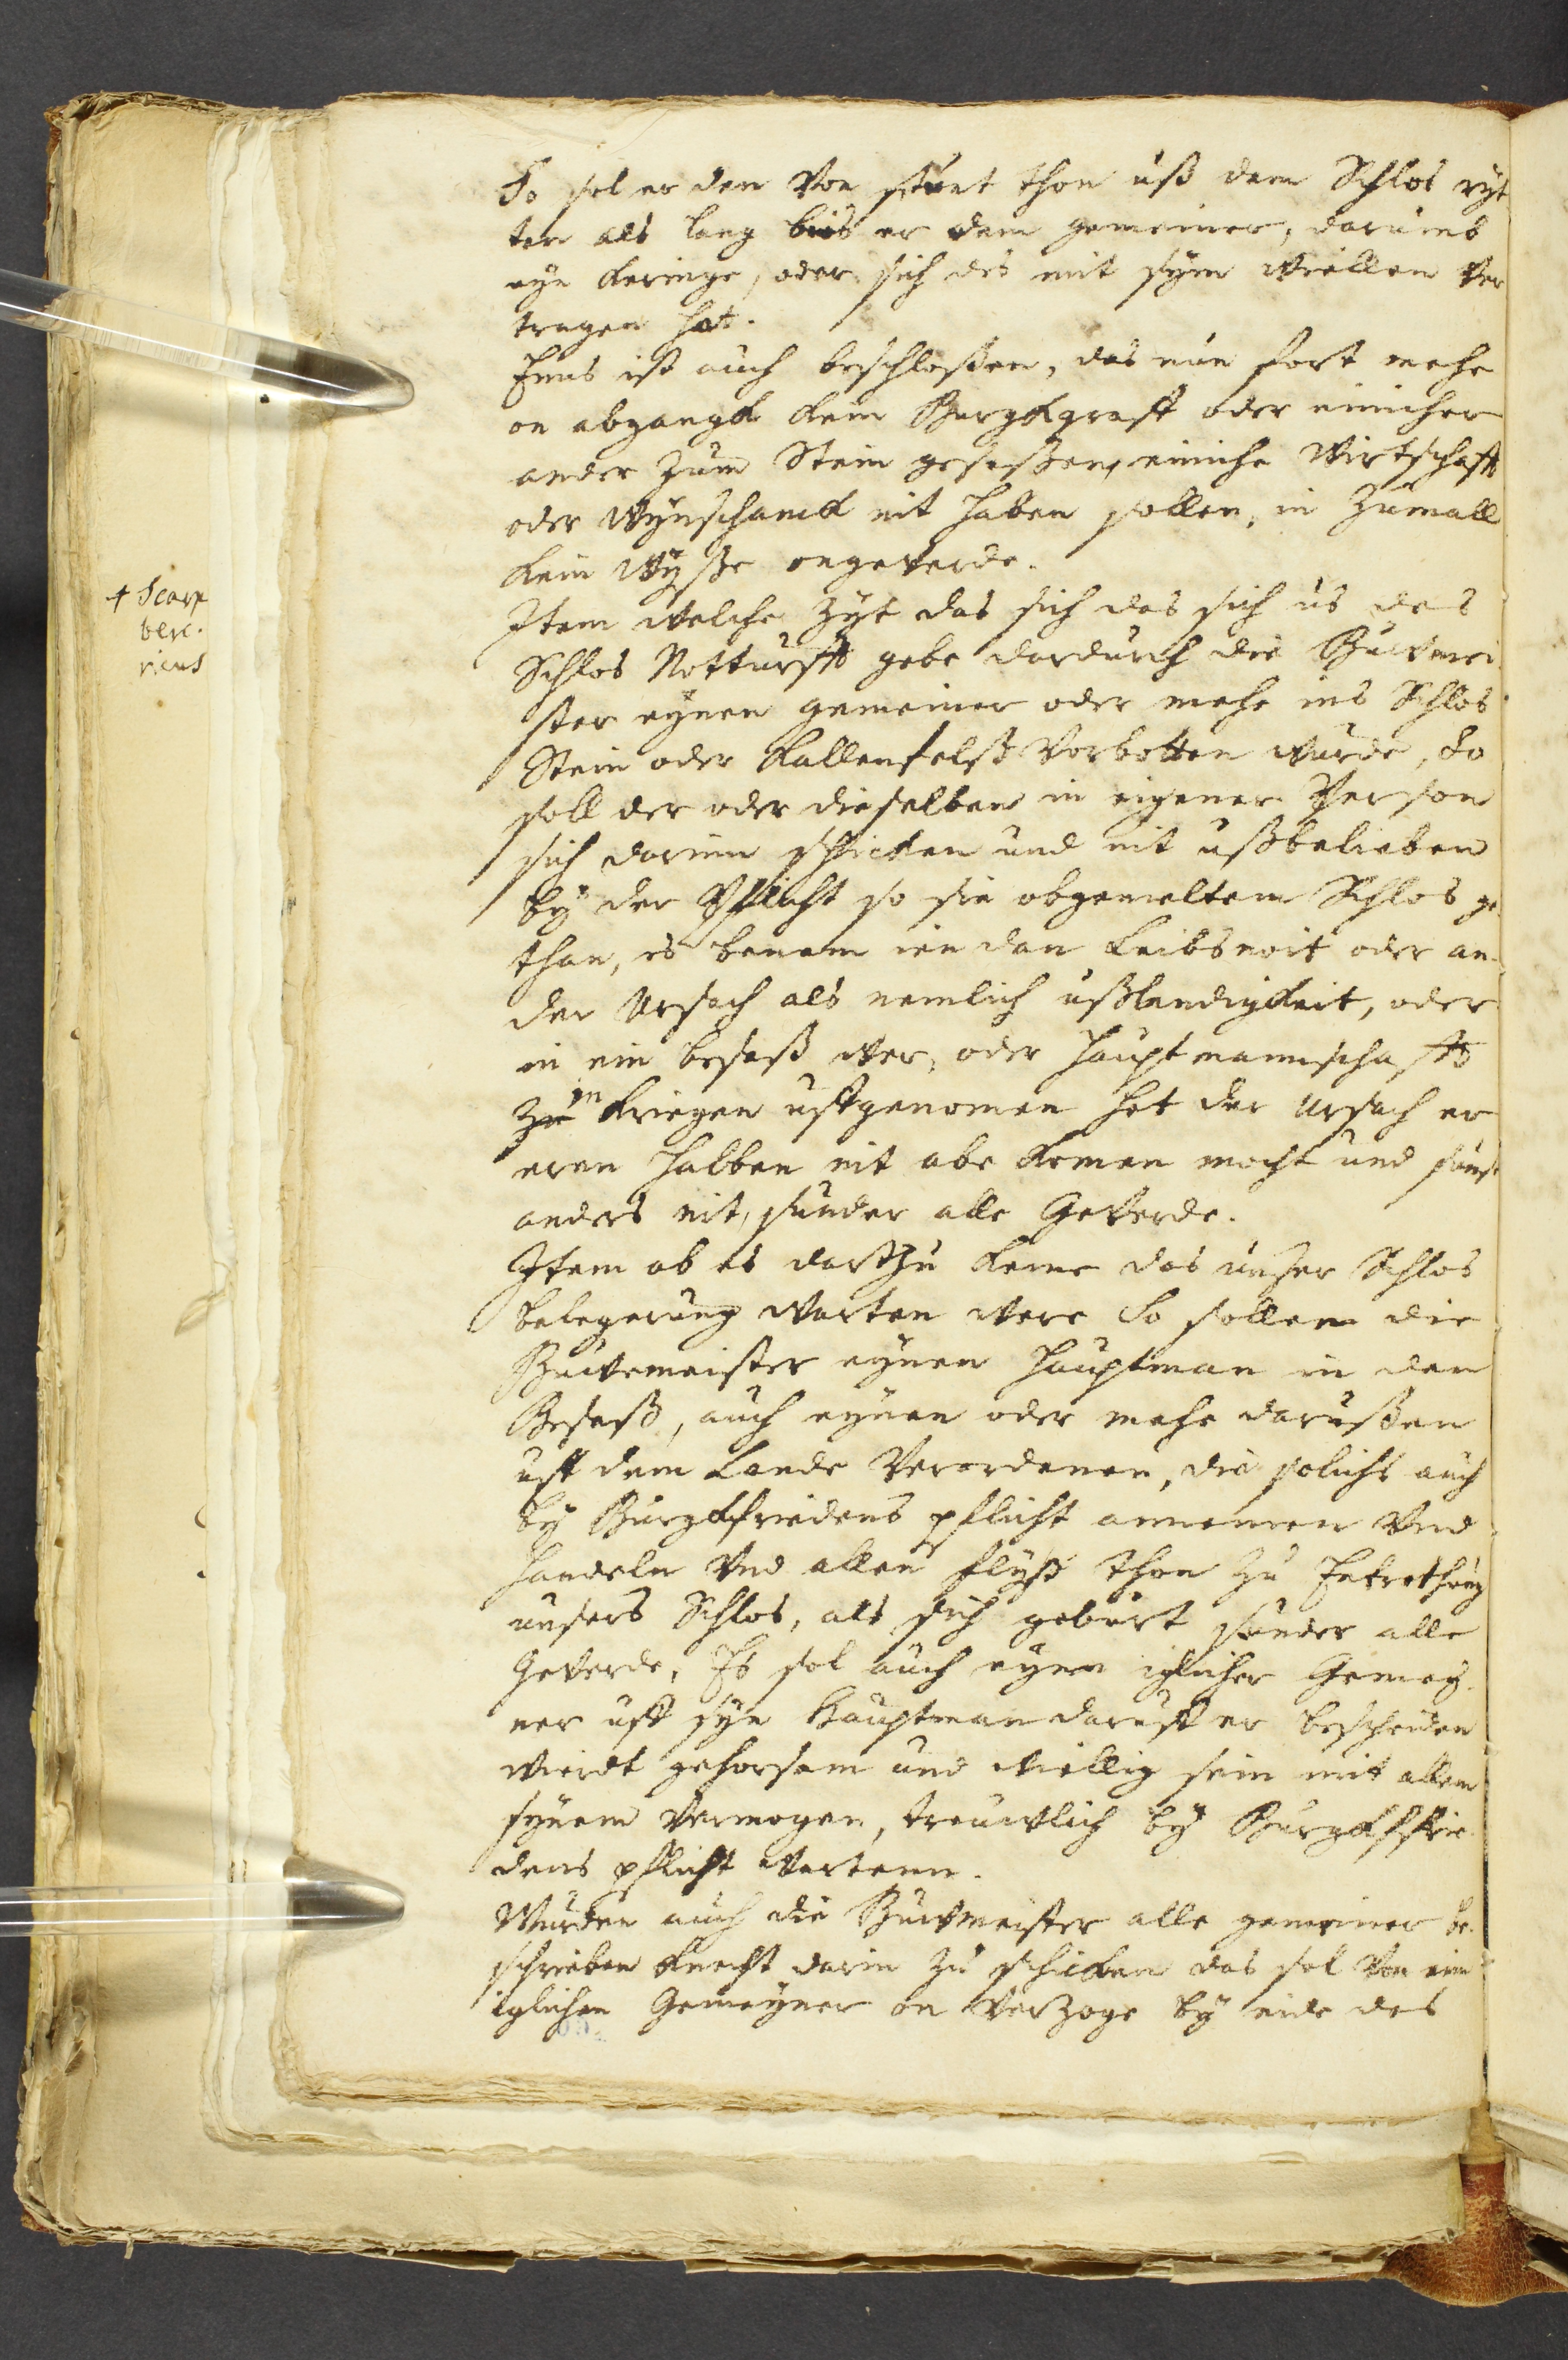 So sol er den Von stunt thon uß dem Schlos ryt
ten als lang bies er dem gemeiner, darumb
eyn keringe, oder sich des mit sym wiellen ver
tragen hat.
Enns ist auch beschloßen, das nun fort mehe
on abgangk kein Burgkgraff oder einicher
ander zum Stein geseßen, einiche Wirtschafft
oder wynschanck nit haben sollen, in zumall
kein wyße ongeverde.
Item welche zyt das sich das sich us des
Schlos Notturfft gebe dardurch die Buwmei
ster eynen gemeiner oder mehe ins Schlos
Stein oder Kallenfelß Vorbotten wurde, So
soll der oder dieselben in eigener Person
sich darinn schicken und nit ußbelieben
by der Pflicht so sie obgemeltem Schlos ge
than, es benem ien dan Leibsnoit oder an
der Ursach als nemlich ußlendigkeit, oder
in ein beseß wer, oder Hauptmannschafft
zu in kriegen uffgenomen het der Ursach er
eren halben nit abe komen mocht und sunst
anders nit, sunder alle Geverde.
Item ob es darthzu keme das unser Schlos
belegerung warten were So sollen die
Buwemeister eynen Hauptman in den
Beseß, auch eynen oder mehe darußen
uff dem Lande Verordenen, die solichs auch
by Burgkfriedens pflicht annemen Und
handeln Und allen flyß thon zu
unsers Schlos, als sich geburt sunder alle
Geverde, Es sol auch eynn iglicher Gemey
ner uff syn Hauptman daruff er bescheiden
wierdt gehorsam und wiellig sein mit allem
synem Vermogen, treuwlich by Burgkffrie
dens pflicht wartenn.
Wurden auch die Buwmeister alle gemeiner be
schrieben knecht darin zu schicken das sol Von eim
iglichen Gemeyner on Verzoge by eide des
+ Scarp
ben.
ricus